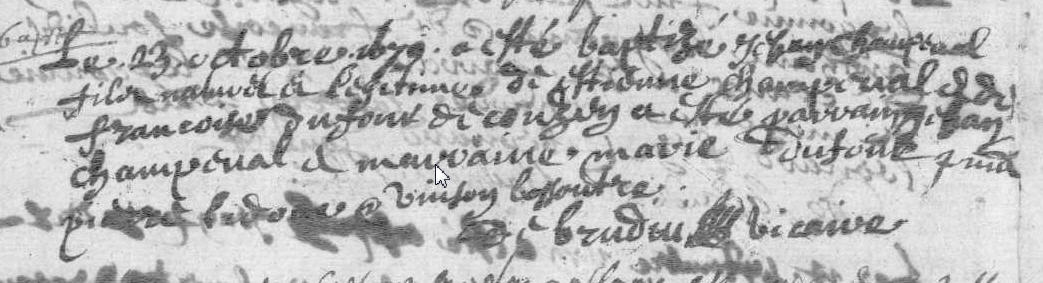 bapt
Le 23 octobre 1679 a esté baptizé Jehan Champeval
filz naturel et legitime de Estienne Champeval et de
francoise Dufour de couzen a esté parrain Jehan
champeval et marraine marie Dufour
pierre
De brudieu vicaire